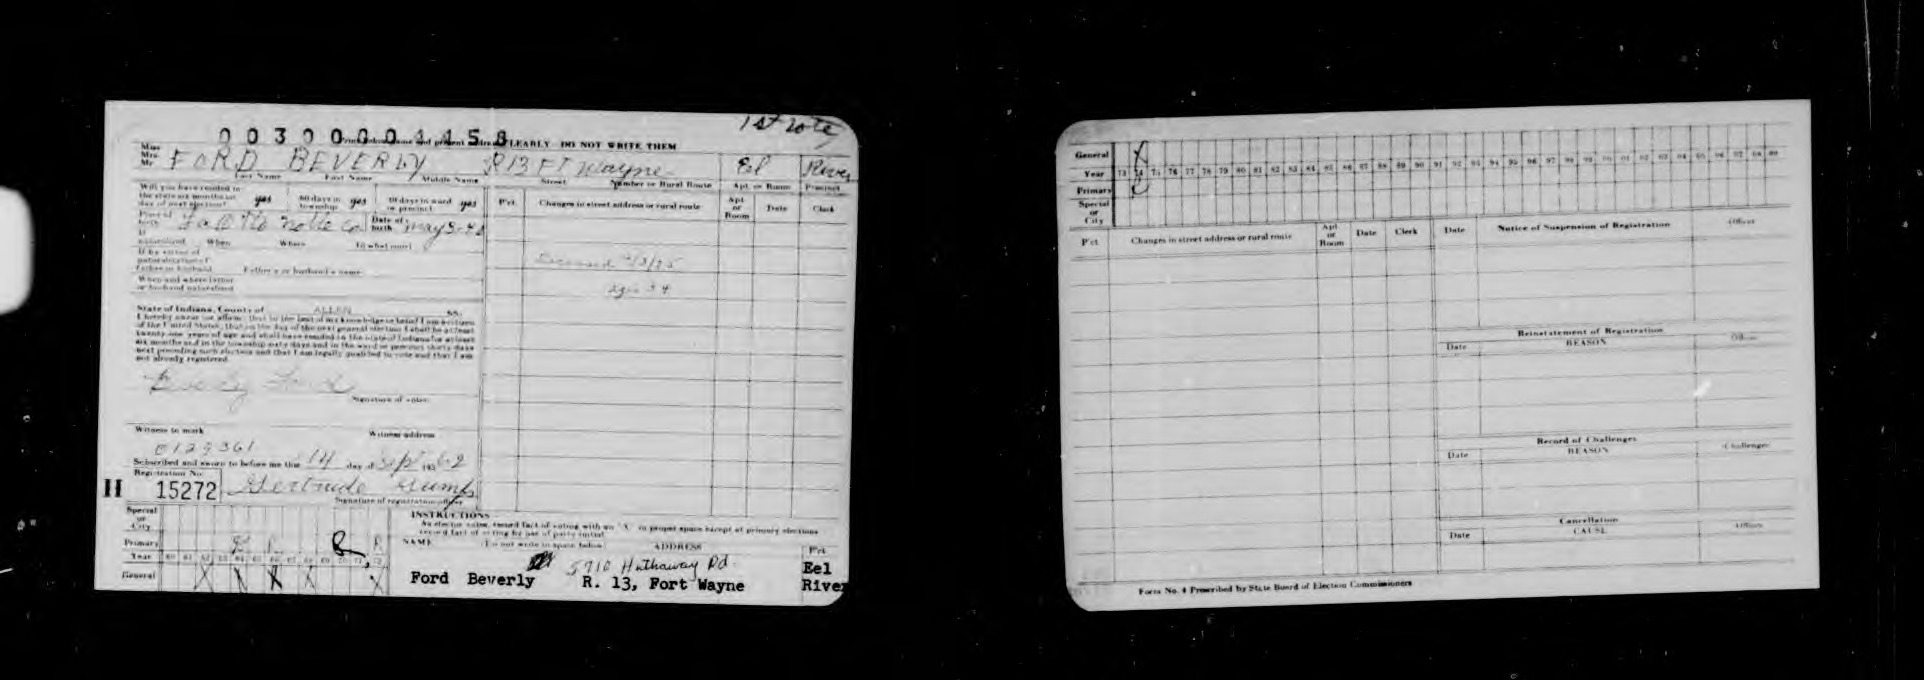 1st vote
0030004458
PLEARLY DO NOT WRITE THEM
Miss
Mrs
Mr
FORD BEVERLY R13 FT Wayne Eel River
Last Name First Name Middle Name Street Number or Rural Route Apt or Room Precinct
Will you have resided in
the state six months on
day of next election? yes 60 days in
township yes 30 days in ward
or precinct yes
P'ct Changes in street address or rural route Apt
or
Room Date Clerk
Place of
birth Date of
birth May
If
naturalized When Where In what court
If by virtue of
naturalization of
father or husband Father's or husband's name
When and where father
or husband naturalized
Deceased
age 34
State of Indiana, County of ALLEN SS.
I hereby swear (or affirm) that to the best of my knowledge or belief I am a citizen
of the United States, that on the day of the next general election I shall be at least
twenty-one years of age and shall have resided in the state of Indiana for at least
six months and in the township sixty days and in the ward or precinct thirty days
next preceding such election and that I am legally qualified to vote and that I am
not already registered.
Beverly Ford
Signature of voter
Witness to mark Witness address
0129361
Subscribed and sworn to before me this 14 day of Sept 62
Registration No.
H 15272 Gertrude
Signature of registration officer
Special
or
City
Primary R R R R
Year 60 61 62 63 64 65 66 67 68 69 70 71 72
General X X X X X
INSTRUCTIONS
As elector votes, record fact of voting with an "X" in proper space except at primary elections
record fact of voting by use of party initial
NAME Do not write in space below ADDRESS P'ct
5710 Hathaway Rd.
Ford Beverly R. 13, Fort Wayne Eel
River
General X
Year 73 74 75 76 77 78 79 80 81 82 83 84 85 86 87 88 89 90 91 92 93 94 95 96 97 98 99 00 01 02 03 04 05 06 07 08 09
Primary
Special
or
City
P'ct Changes in street address or rural route Apt
or
Room Date Clerk
Date Notice of Suspension of Registration Officer
Reinstatement of Registration
Date REASON Officer
Record of Challenges
Date REASON Challenger
Cancellation
Date CAUSE Officer
Form No. 4 Prescribed by State Board of Election Commissioners